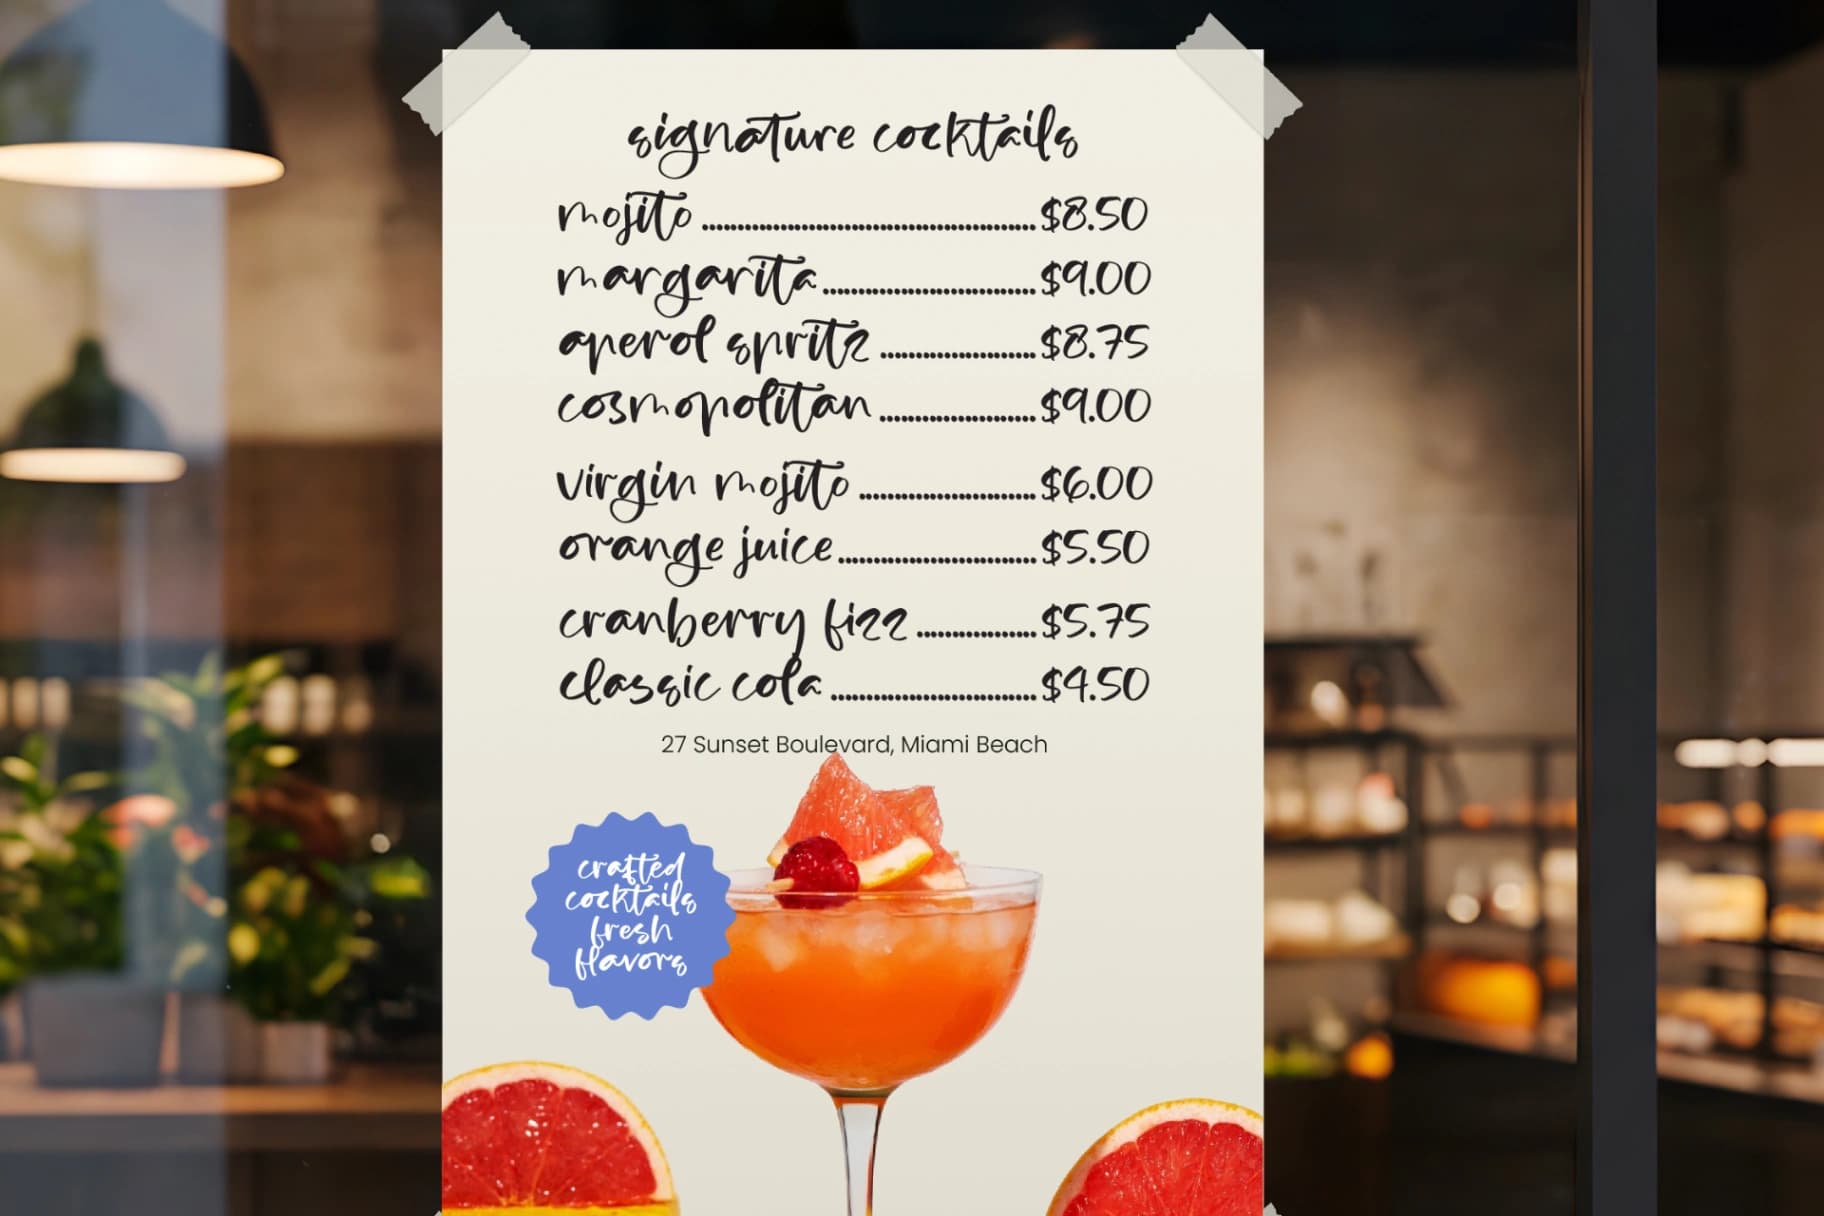 signature cocktails
mojito ........................................ $8.50
margarita ........................................ $9.00
aperol spritz ........................................ $8.75
cosmopolitan ........................................ $9.00
virgin mojito ........................................ $6.00
orange juice ........................................ $5.50
cranberry fizz ........................................ $5.75
classic cola ........................................ $4.50
27 Sunset Boulevard, Miami Beach
crafted
cocktails
fresh
flavors